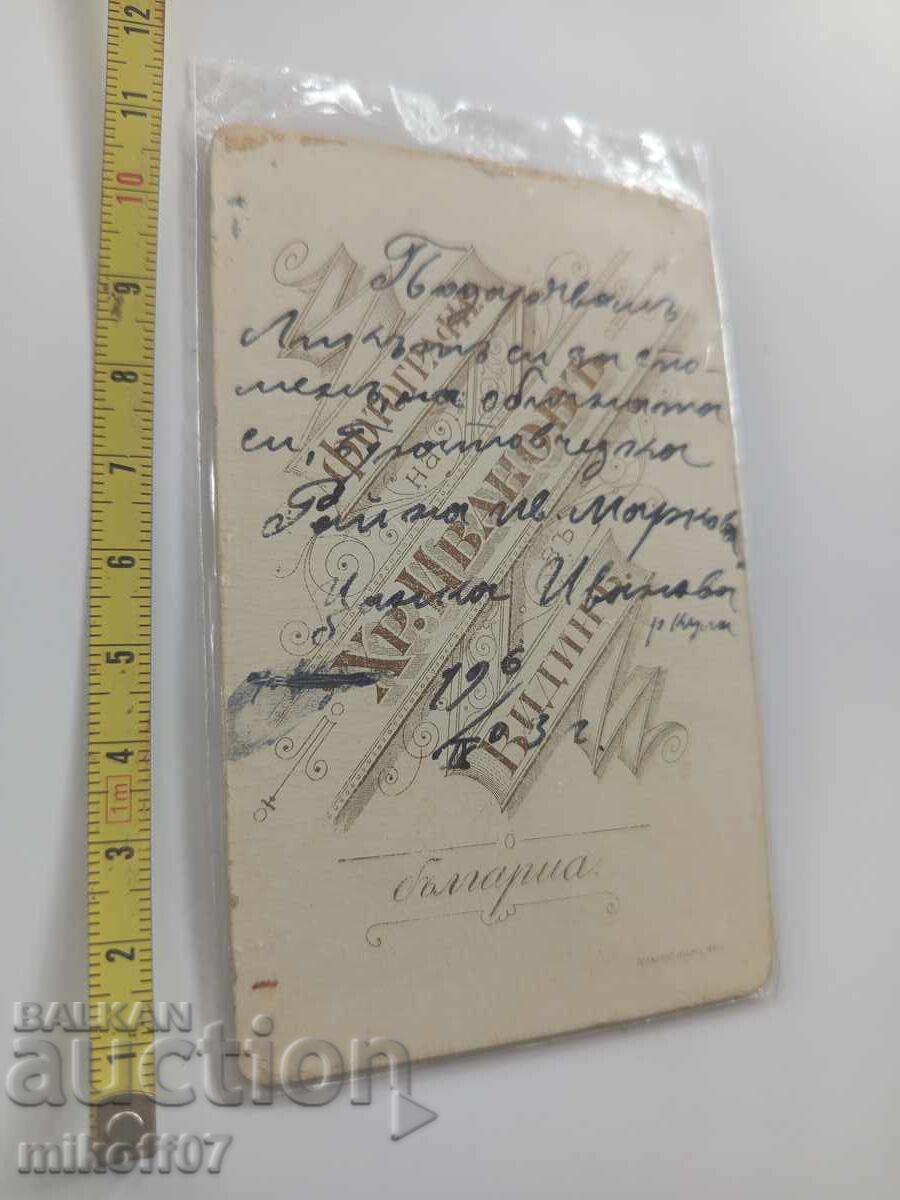 Подарявамъ
Ликътъ си за спо-
менъ на обичната
си,
Райна Ив. Марков
Иванова
19 6/II 03 г.
ФОТОГРАФИЯ
НА
ХР. ИВАНОВЪ
ВЪ
ВИДИНЪ
България.
12
11
10
9
8
7
6
5
4
1m
3
2
1
BALKAN
auction
mikoff07